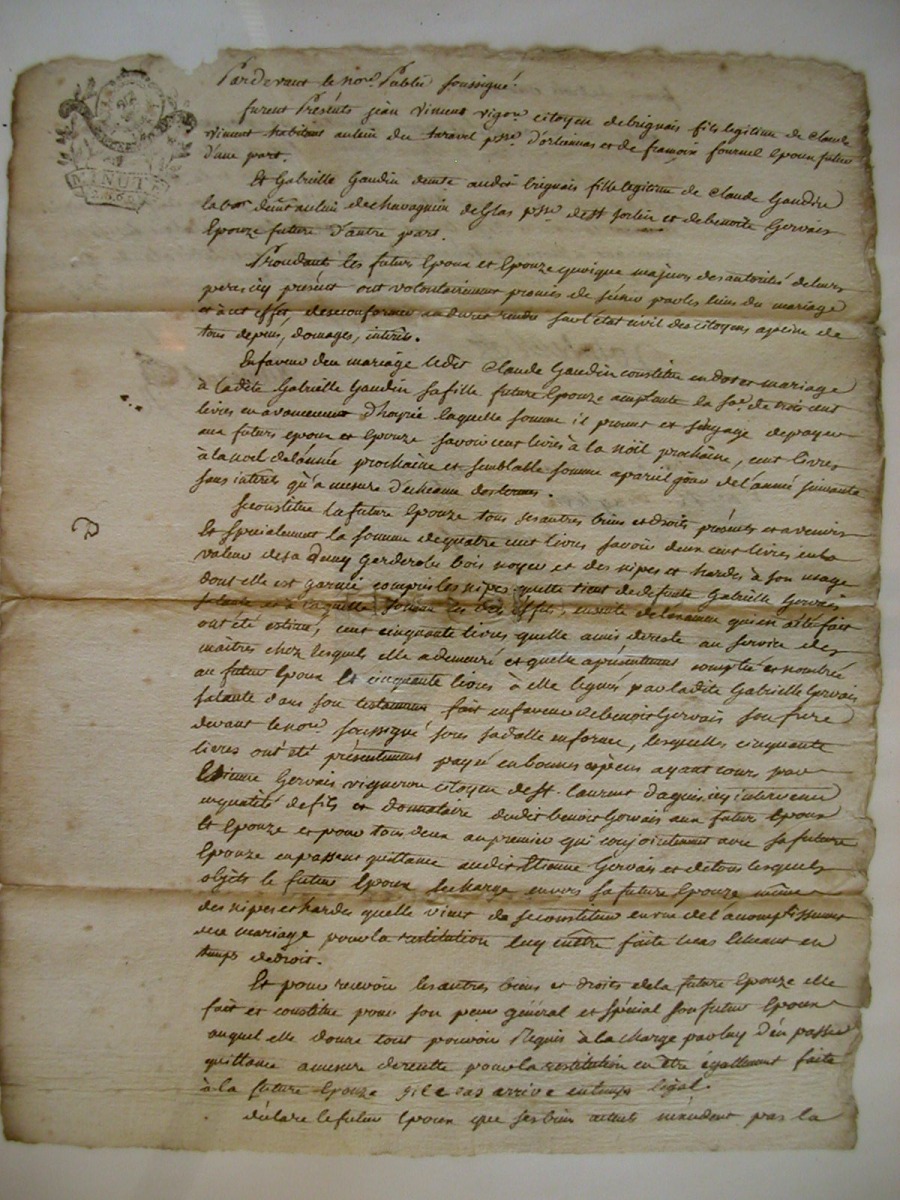 MINUTE
Pardevant le no.re Public soussigné
furent Présents jean Vincent vigo.n citoyen de brignais fils legitime de Claude
vincent habitant au lieu du paroisse d'orliennas et de françoise fournel Epoux futur
d'une part.
Et Gabrielle Gaudin demte audit brignais fille legitime de Claude Gaudin
lab.or demt au lieu de chavagnieu de psse de St et de benoite Gervais
Epouze future d'autre part.
Procedants les futurs Epoux et Epouze quoique majeurs des autorités de leurs
peres icy présent ont volontairement promis de s'unir par les liens du mariage
et à cet effet de se conformer au sur l'état civil des citoyens a peine de
tous depens, domages, intérêts.
En faveur du mariage ledit Claude Gaudin constitue en dot et mariage
à ladite Gabrielle Gaudin sa fille future Epouze acceptante la so.e de trois cent
livres en avancement d'hoyrie laquelle somme il promet et s'engage de payer
aux futurs epoux et Epouze savoir cent livres à la noël prochaine, cent livres
à la noel de l'année prochaine et semblable somme a pareil jour de l'année suivante
sans intérêts qu'a mesure d'écheance des termes.
Se constitue la future Epouze tous ses autres biens et droits présents et avenirs
Et specialement la somme de quatre cent livres savoir deux cent livres en la
valeur de sa garderobe bois noyer et des nipes et hardes à son usage
dont elle est garnie compris les nipes qu'elle tient de defunte Gabrielle Gervais
sa tante et à laquelle somme les dits effets, ensuite de l'examen qui en a été fait
ont été estimés, cent cinquante livres qu'elle a mis de reste au service des
maîtres chez lesquels elle a demeuré et qu'elle a présentement compté et nombré
au futur Epoux Et cinquante livres à elle leguées par ladite Gabrielle Gervais
sa tante dans son testament fait en faveur de benoit Gervais son frere
devant le no.re soussigné sous sa datte en forme, lesquelles cinquante
livres ont été présentement payé en bonnes espèces ayant cours par
Etienne Gervais vigneron citoyen de St. laurent d'agnis icy intervenu
en qualité de fils et donataire dudit benoit Gervais aux futur Epoux
Et Epouze et pour tous deux au premier qui conjointement avec sa future
Epouze en passent quittance audit Etienne Gervais et de tous lesquels
objets le futur Epoux se charge envers sa future Epouze même
des nipes et hardes qu'elle vient de se constituer en vue de l'accomplissement
du mariage pour la restitution luy en être faite le cas Echeant en
temps de droit.
Et pour recevoir les autres biens et droits de la future Epouze elle
fait et constitue pour son procureur général et spécial son futur Epoux
auquel elle donne tout pouvoir Requis à la charge par luy d'en passer
quittance a mesure de recette pour la restitution en être egallement faite
à la future Epouze si le cas arrive en temps légal.
déclare le futur Epoux que ses biens actuels n'excedent pas la